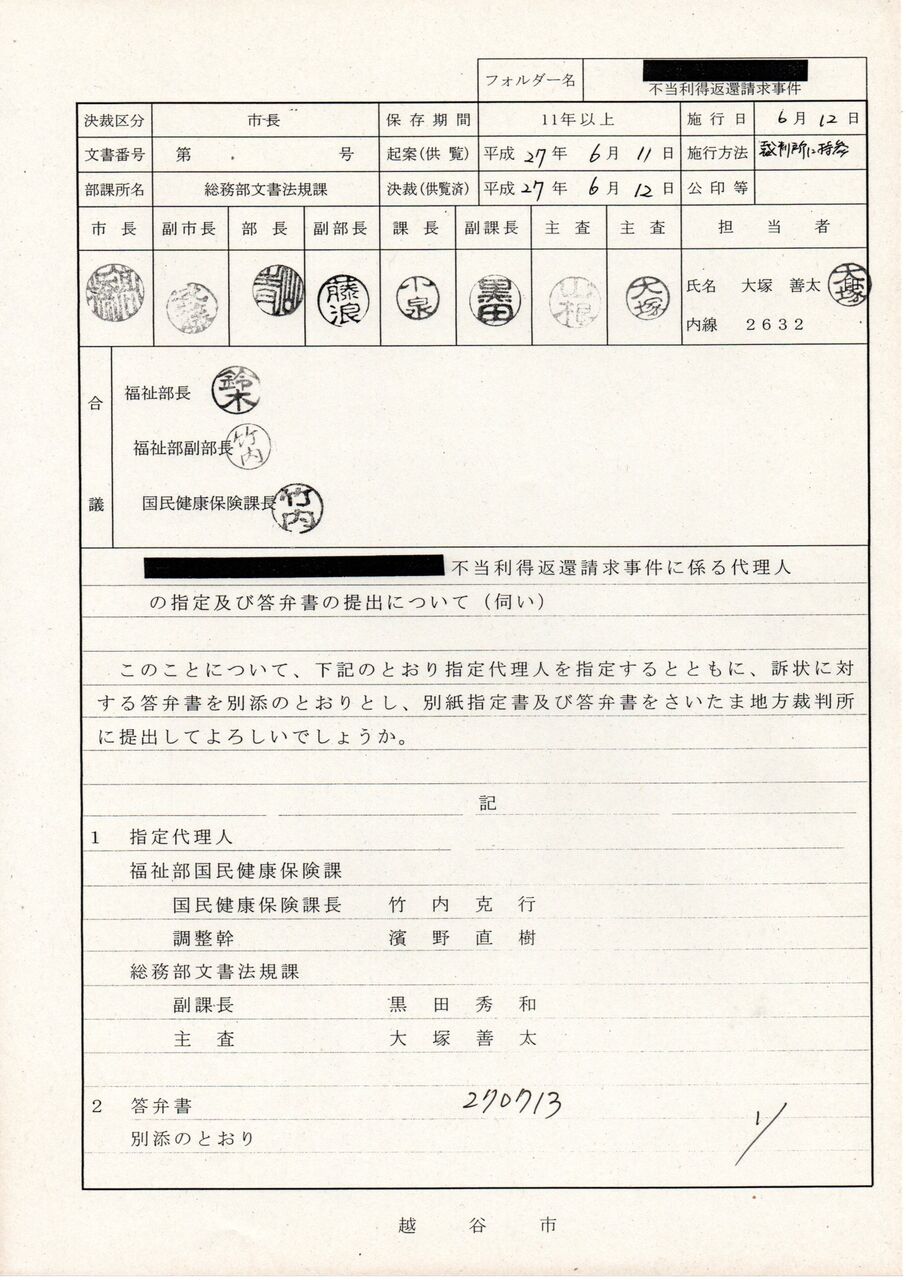 フォルダー名 不当利得返還請求事件
決裁区分 市長 保存期間 11年以上 施行日 6月12日
文書番号 第 . 号 起案(供覧) 平成27年6月11日 施行方法 裁判所に持参
部課所名 総務部文書法規課 決裁(供覧済) 平成27年6月12日 公印等
市長 副市長 部長 副部長 課長 副課長 主査 主査 担当者
藤浪 小泉 黒田 山根 大塚
氏名 大塚 善太 大塚
内線 2632
合議
福祉部長 鈴木
福祉部副部長 竹内
国民健康保険課長 竹内
不当利得返還請求事件に係る代理人
の指定及び答弁書の提出について(伺い)
このことについて、下記のとおり指定代理人を指定するとともに、訴状に対
する答弁書を別添のとおりとし、別紙指定書及び答弁書をさいたま地方裁判所
に提出してよろしいでしょうか。
記
1 指定代理人
福祉部国民健康保険課
国民健康保険課長 竹内克行
調整幹 濱野直樹
総務部文書法規課
副課長 黒田秀和
主査 大塚善太
2 答弁書 270713
別添のとおり 1/
越谷市